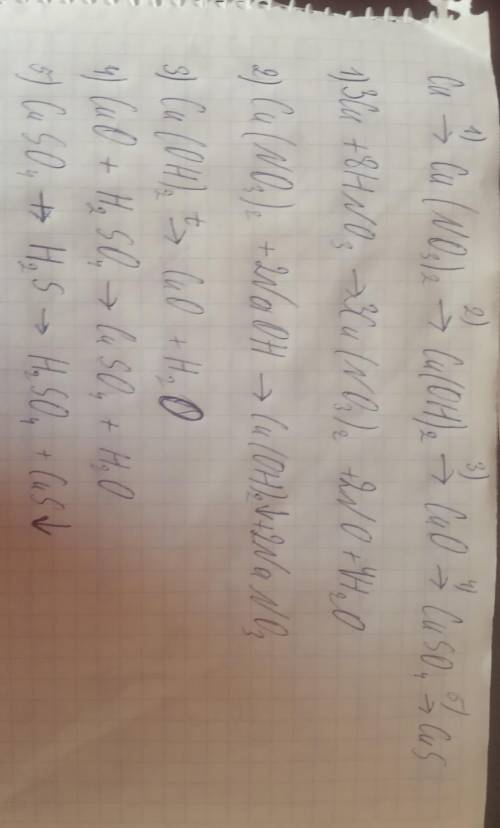 Cu 1)→ Cu(NO₃)₂ 2)→ Cu(OH)₂ 3)→ CuO 4)→ CuSO₄ 5)→ CuS
1) 3Cu + 8HNO₃ → 3Cu(NO₃)₂ + 2NO + 4H₂O
2) Cu(NO₃)₂ + 2NaOH → Cu(OH)₂↓ + 2NaNO₃
3) Cu(OH)₂ t→ CuO + H₂O
4) CuO + H₂SO₄ → CuSO₄ + H₂O
5) CuSO₄ + H₂S → H₂SO₄ + CuS↓